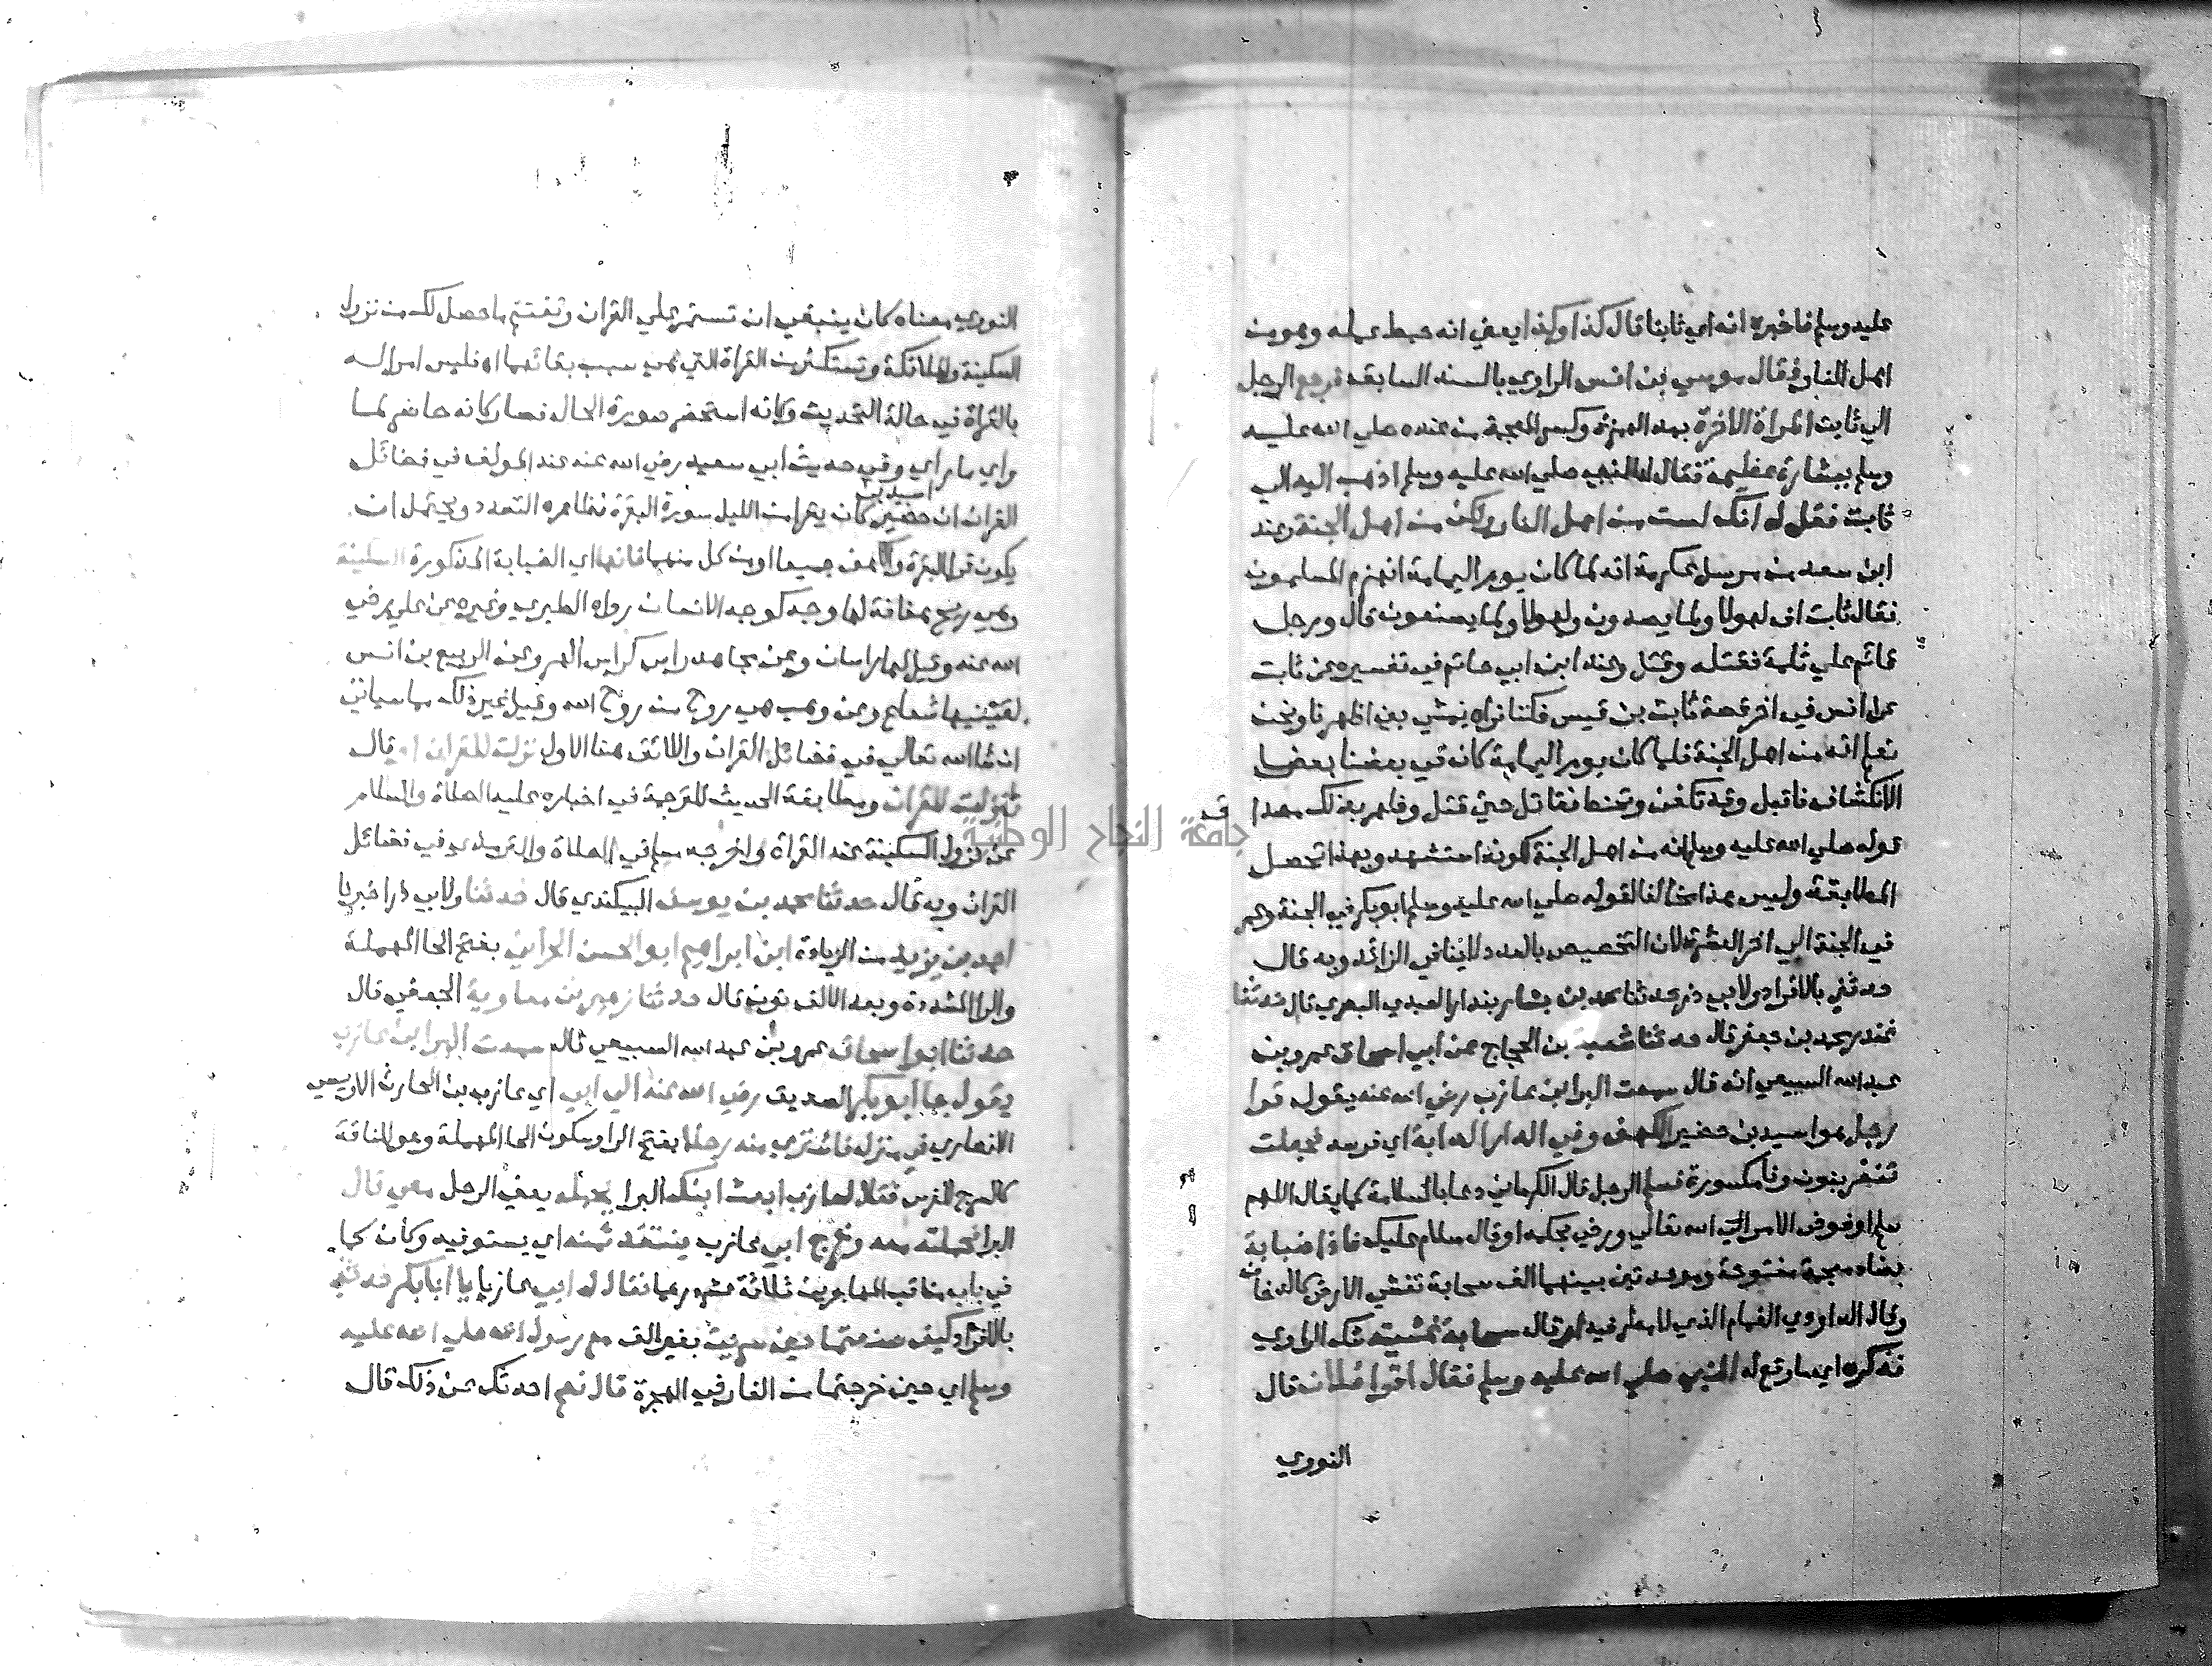 عليه وسلم فاخبره انه اي ثابتا قال كذا وكذا يعني انه حبط عمله وهو من
اهل النار فقال موسي بن انس الراوي بالسند السابق فرجع الرجل
الي ثابت المراة الاخرة بمد الهمزة وكسر المعجمة من عنده صلي الله عليه
وسلم ببشارة عظيمة فقال له النبي صلي الله عليه وسلم اذهب اليه الي
ثابت فقل له انك لست من اهل النار ولكن من اهل الجنة وعند
ابن سعد من مرسل عكرمة انه لما كان يوم اليمامة انهزم المسلمون
فقال ثابت اف لهولا ولما يعبدون ولهولا ولما يصنعون قال ورجل
قائم علي ثلمة فقتله وقتل وعند ابن ابي حاتم في تفسيره عن ثابت
عن انس في اخر قصة ثابت بن قيس فكنا نراه يمشي بين اظهرنا ونحن
نعلم انه من اهل الجنة فلما كان يوم اليمامة كان في بعضنا بعض
الانكشاف فاقبل وقد تكفن وتحنط فقاتل حتي قتل وظهر بذلك مصداق
قوله صلي الله عليه وسلم انه من اهل الجنة لكونه استشهد وبهذا تحصل
المطابقة وليس هذا مخالفا لقوله صلي الله عليه وسلم ابو بكر في الجنة وعمر
في الجنة الي اخر العشرة لان التخصيص بالعدد لا ينافي الزائد وبه قال
حدثني بالافراد ولابي ذر حدثنا محمد بن بشار بندار العبدي البصري قال حدثنا
غندر محمد بن جعفر قال حدثنا شعبة بن الحجاج عن ابي اسحاق عمرو بن
عبد الله السبيعي انه قال سمعت البرا بن عازب رضي الله عنه يقول قرا
رجل هو اسيد بن حضير الكهف وفي الدار الدابة اي فرسه فجعلت
تنفر بنون وفا مكسورة فسلم الرجل قال الكرماني دعا بالسلامة كما يقال اللهم
سلم او فوض الامر الي الله تعالي ورضي بحكمه او قال سلام عليك فاذا ضبابة
بضاد معجمة مفتوحة وموحدتين بينهما الف سحابة تغشي الارض كالدخان
وقال الداودي الغمام الذي لا مطر فيه او قال سحابة غشيته شك الراوي
فذكره اي ما وقع له للنبي صلي الله عليه وسلم فقال اقرا فلان قال
النووي
النووي معناه كان ينبغي ان تستمر علي القران وتغتنم ما حصل لك من نزول
السكينة والملائكة وتستكثر من القراة التي هي سبب بقائهما اه فليس امرا له
بالقراة في حالة التحديث وكانه استحضر صورة الحال فصار كانه حاضر لما
راي ما راي وفي حديث ابي سعيد رضي الله عنه عند المولف في فضائل
القران ان اسيد بن حضير كان يقرا من الليل سورة البقرة فظاهره التعدد ويحتمل ان
يكون قرا البقرة والكهف جميعا او من كل منهما فانها اي الضبابة المذكورة السكينة
وهي ريح هفافة لها وجه كوجه الانسان رواه الطبري وغيره عن علي رضي
الله عنه وقيل لها راسان وعن مجاهد راس كراس الهر وعن الربيع بن انس
لعينيها شعاع وعن وهب هي روح من روح الله وقيل غير ذلك مما سياتي
ان شاالله تعالي في فضائل القران واللائق هنا الاول نزلت للقران او قال
تنزلت للقران ومطابقة الحديث للترجمة في اخباره عليه الصلاة والسلام
عن نزول السكينة عند القراة واخرجه مسلم في الصلاة والترمذي في فضائل
القران وبه قال حدثنا محمد بن يوسف البيكندي قال حدثنا ولابي ذر اخبرنا
احمد بن يزيد من الزيادة ابن ابراهيم ابو الحسن الحراني بفتح الحا المهملة
والرا المشددة وبعد الالف نون قال حدثنا زهير بن معاوية الجعفي قال
حدثنا ابو اسحاق عمرو بن عبد الله السبيعي قال سمعت البرا بن عازب
يقول جا ابو بكر الصديق رضي الله عنه الي ابي اي عازب بن الحارث الاوسي
الانصاري في منزله فاشتري منه رحلا بفتح الرا وسكون الحا المهملة وهو للناقة
كالسرج للفرس فقال لعازب ابعث ابنك البرا يحمله يعني الرحل معي قال
البرا فحملته معه وخرج ابي عازب ينتقد ثمنه اي يستوفيه وكان كما
في باب مناقب المهاجرين ثلاثة عشر درهما فقال له ابي عازب يا ابا بكر حدثني
بالافراد كيف صنعتما حين سريت بغير الف مع رسول الله صلي الله عليه
وسلم اي حين خرجتما من الغار في الهجرة قال نعم احدثك عن ذلك قال
جامعة النجاح الوطنية